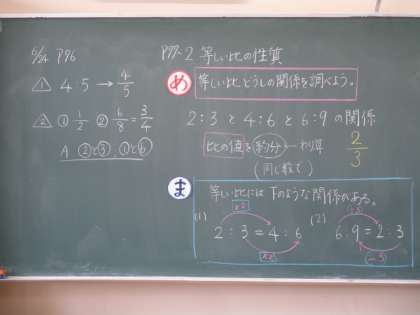 6/24 P96
△1 4 5 → 4/5
△2 ① 1/2 ② 6/8 = 3/4
A ②と③, ①と⑥
P97~2 等しい比の性質
め 等しい比どうしの関係を調べよう。
2:3と4:6と6:9の関係
比の値を約分←わり算 2/3
(同じ数で)
ま 等しい比には下のような関係がある。
(1) ×2
2:3=4:6
×2
(2) ÷3
6:9=2:3
÷3